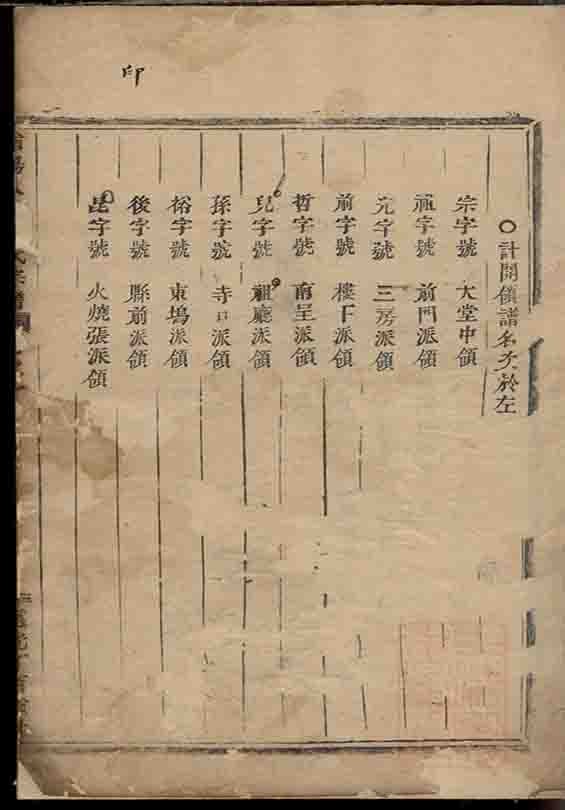 印
○計開領譜名次於左
宗字號 大堂中領
祖字號 前門派領
元字號 三房派領
前字號 樓下派領
哲字號 南呈派領
兒字號 祖廳派領
孫字號 寺口派領
裕字號 東塢派領
後字號 縣前派領
昆字號 火燒張派領